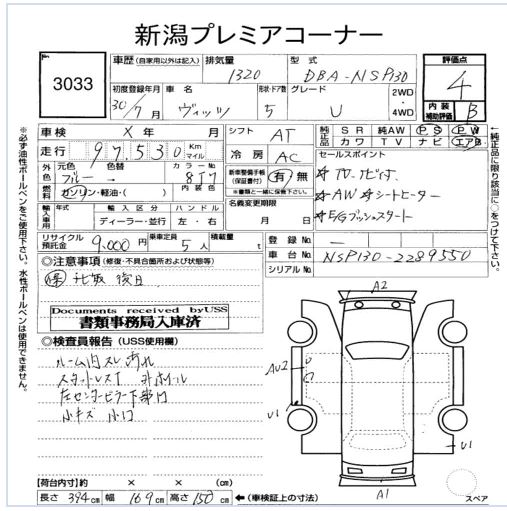 新潟プレミアコーナー
3033
車歴 (自家用以外は記入)
排気量 1320
型式 DBA-NSP130
評価点 4
内装補助評価 B
初度登録年月 30年 7月
車名 ヴィッツ
形状・ドア数 5
グレード U
2WD・4WD
車検 X 年 月
走行 97,530 Km マイル
シフト AT
冷房 AC
純正品 SR 純正AW PS PW
革 カワ TV ナビ エアB
外色 元色 ブルー 色替
カラーNo. 8T7
燃料 ガソリン・軽油・( )
内装色
新車整備手帳 (保証書付) 有 無
※書類と一緒に保管下さい。
セールスポイント
☆TV. ナビ付.
☆AW ☆シートヒーター
☆E/Gプッシュスタート
輸入車用 年式
輸入区分 ディーラー・並行
ハンドル 左・右
名義変更期限 月 日
リサイクル預託金 9,000円
乗車定員 5人
積載量 t
登録No. —
車台No. NSP130-2289550
シリアルNo.
◎注意事項 (修復・不具合箇所および状態等)
Documents received byUSS
書類事務局入庫済
◎検査員報告 (USS使用欄)
ルーム内スレ あれ
左センターピラー下部凹
小キズ 小凹
A2
AU2
U
U1
U1
A1
【荷台内寸】約 × × (cm)
長さ 394cm 幅 169cm 高さ 150cm ←(車検証上の寸法)
スペア
※必ず油性ボールペンをご使用下さい。水性ボールペンは使用できません。
←純正品に限り該当に○をつけて下さい。